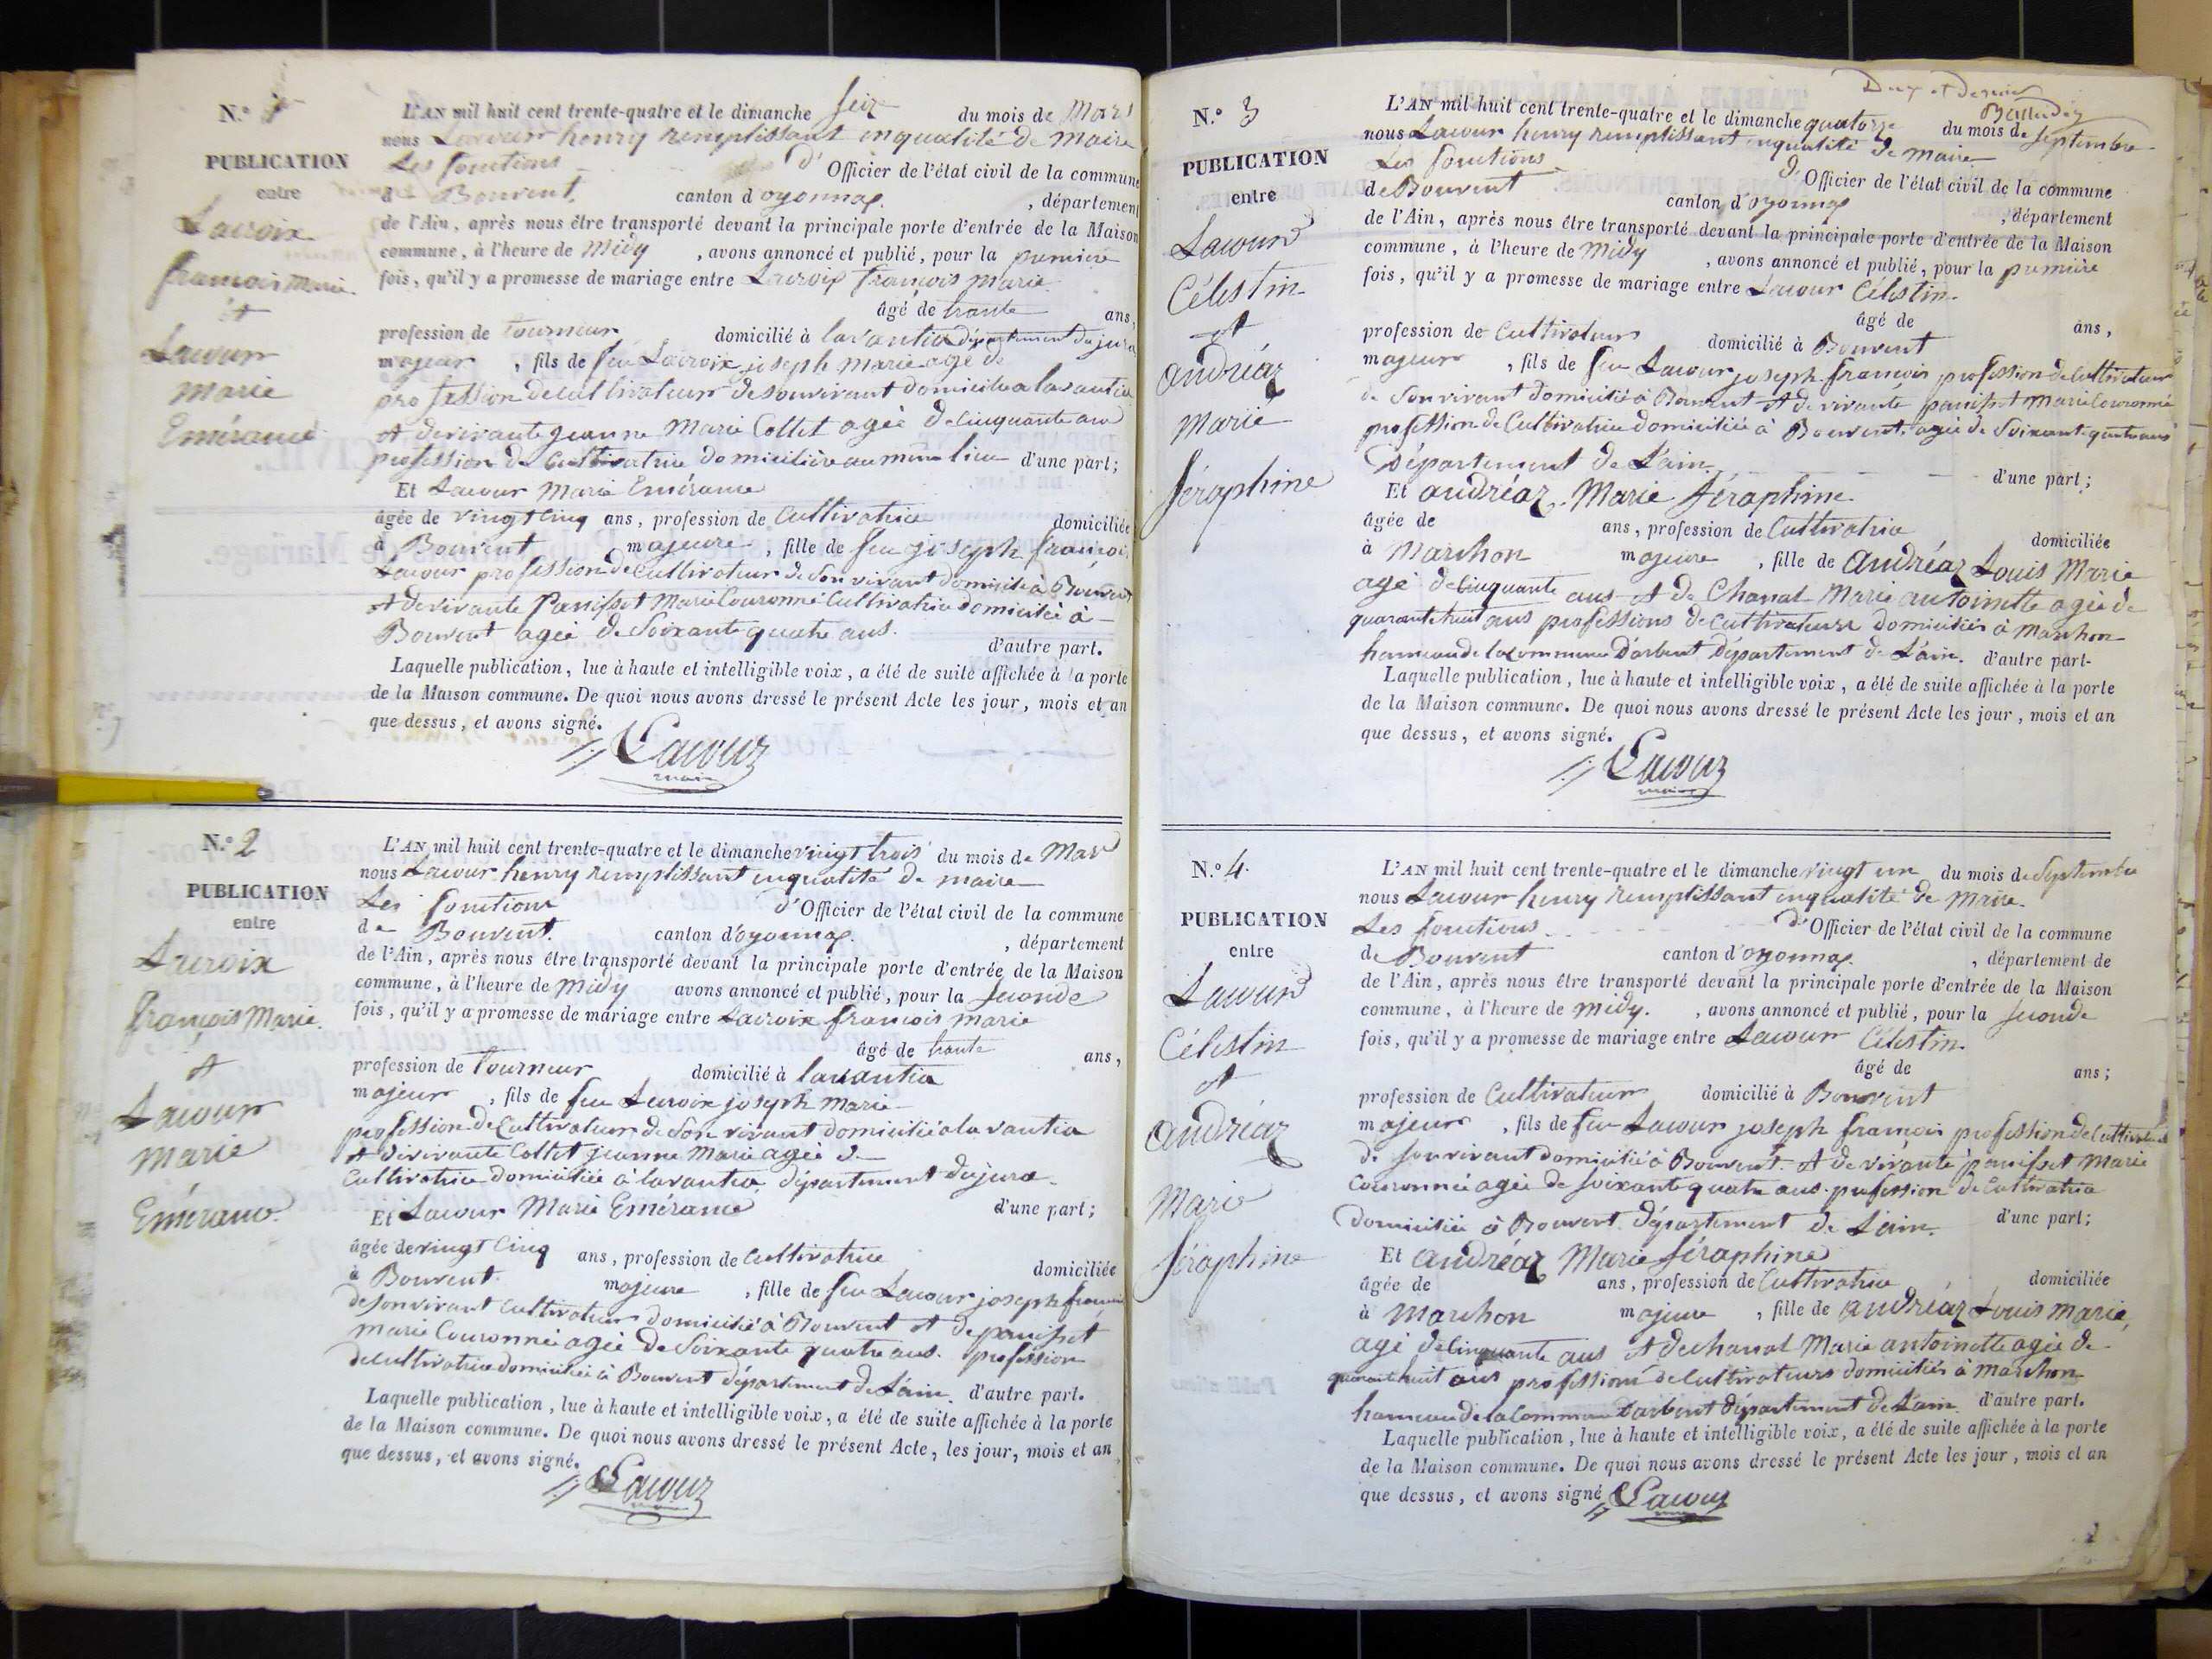 N.o 1
PUBLICATION
entre
Lacroix
françois Marie
et
Lacour
Marie
Emérance
L'AN mil huit cent trente-quatre et le dimanche seize du mois de Mars
nous Lacour henry remplissant en qualité de Maire
Les fonctions d'Officier de l'état civil de la commune
d Bouvent canton d oyonnax , département
de l'Ain, après nous être transporté devant la principale porte d'entrée de la Maison
commune, à l'heure de Midy , avons annoncé et publié, pour la première
fois, qu'il y a promesse de mariage entre Lacroix françois Marie
âgé de trante ans,
profession de tourneur domicilié à lavantia département du jura
majeur , fils de feu Lacroix joseph Marie agé de
profession de cultivateur de son vivant domicilié a lavantia
et de vivante jeanne Marie Collet agée de cinquante ans
profession de Cultivatrice domicilière au même lieu d'une part;
Et Lacour Marie Emérance
âgée de vingt cinq ans, profession de Cultivatrice domiciliée
à Bouvent majeure , fille de feu joseph françois
Lacour profession de Cultivateur de son vivant domicilié à Bouvent
et de vivante Panisset Marie Couronné Cultivatrice domiciliée à
Bouvent agée de Soixante quatre ans. d'autre part.
Laquelle publication, lue à haute et intelligible voix, a été de suite affichée à la porte
de la Maison commune. De quoi nous avons dressé le présent Acte les jour, mois et an
que dessus, et avons signé.
Lacour
maire
N.o 2
PUBLICATION
entre
Lacroix
françois Marie
et
Lacour
Marie
Emérance
L'AN mil huit cent trente-quatre et le dimanche vingt trois du mois de Mars
nous Lacour henry remplissant en qualité de maire
Les fonctions d'Officier de l'état civil de la commune
de Bouvent. canton d'oyonnax. , département
de l'Ain, après nous être transporté devant la principale porte d'entrée de la Maison
commune, à l'heure de midy avons annoncé et publié, pour la seconde
fois, qu'il y a promesse de mariage entre Lacroix françois marie
âgé de trante ans,
profession de tourneur domicilié à lavantia
majeur , fils de feu Lacroix joseph Marie
profession de Cultivateur de Son vivant domicilié a la vantia
et de vivante Collet jeanne Marie agée de
Cultivatrice domiciliée à lavantia département du jura
d'une part;
Et Lacour Marie Emérance
âgée de vingt Cinq ans, profession de Cultivatrice domiciliée
à Bouvent. majeure , fille de feu Lacour joseph francois
de son vivant Cultivateur domicilié à Bouvent et de panisset
Marie Couronnée agée de Soixante quatre ans. profession
de cultivatrice domiciliée à Bouvent département de L'ain. d'autre part.
Laquelle publication, lue à haute et intelligible voix, a été de suite affichée à la porte
de la Maison commune. De quoi nous avons dressé le présent Acte, les jour, mois et an
que dessus, et avons signé.
Lacour
Deux et dernier
N.o 3
PUBLICATION
entre
Lacour
Célestin
et
andréaz
Marie
Séraphine
L'AN mil huit cent trente-quatre et le dimanche quatorze du mois de Septembre
nous Lacour henry remplissant en qualité de maire
Les fonctions d'Officier de l'état civil de la commune
de Bouvent canton d'oyonnax , département
de l'Ain, après nous être transporté devant la principale porte d'entrée de la Maison
commune, à l'heure de midy , avons annoncé et publié, pour la première
fois, qu'il y a promesse de mariage entre Lacour Célestin.
âgé de ans,
profession de Cultivateur domicilié à Bouvent
majeur , fils de feu Lacour joseph françois profession de Cultivateur
de Son vivant domicilié à Bouvent et de vivante panisset Marie Couronné
profession de Cultivatrice domiciliée à Bouvent, agée de Soixante quatre ans
Département de L'ain. d'une part;
Et andréaz, Marie Séraphine
âgée de ans, profession de Cultivatrice domiciliée
à Marchon majeure , fille de andréaz Louis Marie
agé de cinquante ans et de Chanal Marie antoinette agée de
quarante huit ans professions de Cultivateurs domiciliés à Marchon
hameau de la commune d'arbent Département de L'ain. d'autre part.
Laquelle publication, lue à haute et intelligible voix, a été de suite affichée à la porte
de la Maison commune. De quoi nous avons dressé le présent Acte les jour, mois et an
que dessus, et avons signé.
Lacour
maire
N.o 4.
PUBLICATION
entre
Lacour
Célestin
et
andréaz
Marie
Séraphine
L'AN mil huit cent trente-quatre et le dimanche vingt un du mois de Septembre
nous Lacour henry remplissant en qualité de Maire.
Les fonctions d'Officier de l'état civil de la commune
de Bouvent canton d'oyonnax. , département de
de l'Ain, après nous être transporté devant la principale porte d'entrée de la Maison
commune, à l'heure de midy. , avons annoncé et publié, pour la seconde
fois, qu'il y a promesse de mariage entre Lacour Célestin.
âgé de ans;
profession de Cultivateur domicilié à Bouvent
majeur , fils de feu Lacour joseph françois profession de Cultivateur
de son vivant domicilié à Bouvent. et de vivante panisset Marie
Couronnée agée de soixante quatre ans. profession de Cultivatrice
domiciliée à Bouvent département de L'ain. d'une part;
Et andréaz Marie Séraphine
âgée de ans, profession de Cultivatrice domiciliée
à Marchon majeure , fille de andréaz Louis marie,
agé de cinquante ans et de chanal Marie antoinette agée de
quarante huit ans professions de Cultivateurs domiciliés à Marchon
hameau de la Commune d'arbent département de L'ain. d'autre part.
Laquelle publication, lue à haute et intelligible voix, a été de suite affichée à la porte
de la Maison commune. De quoi nous avons dressé le présent Acte les jour, mois et an
que dessus, et avons signé
Lacour